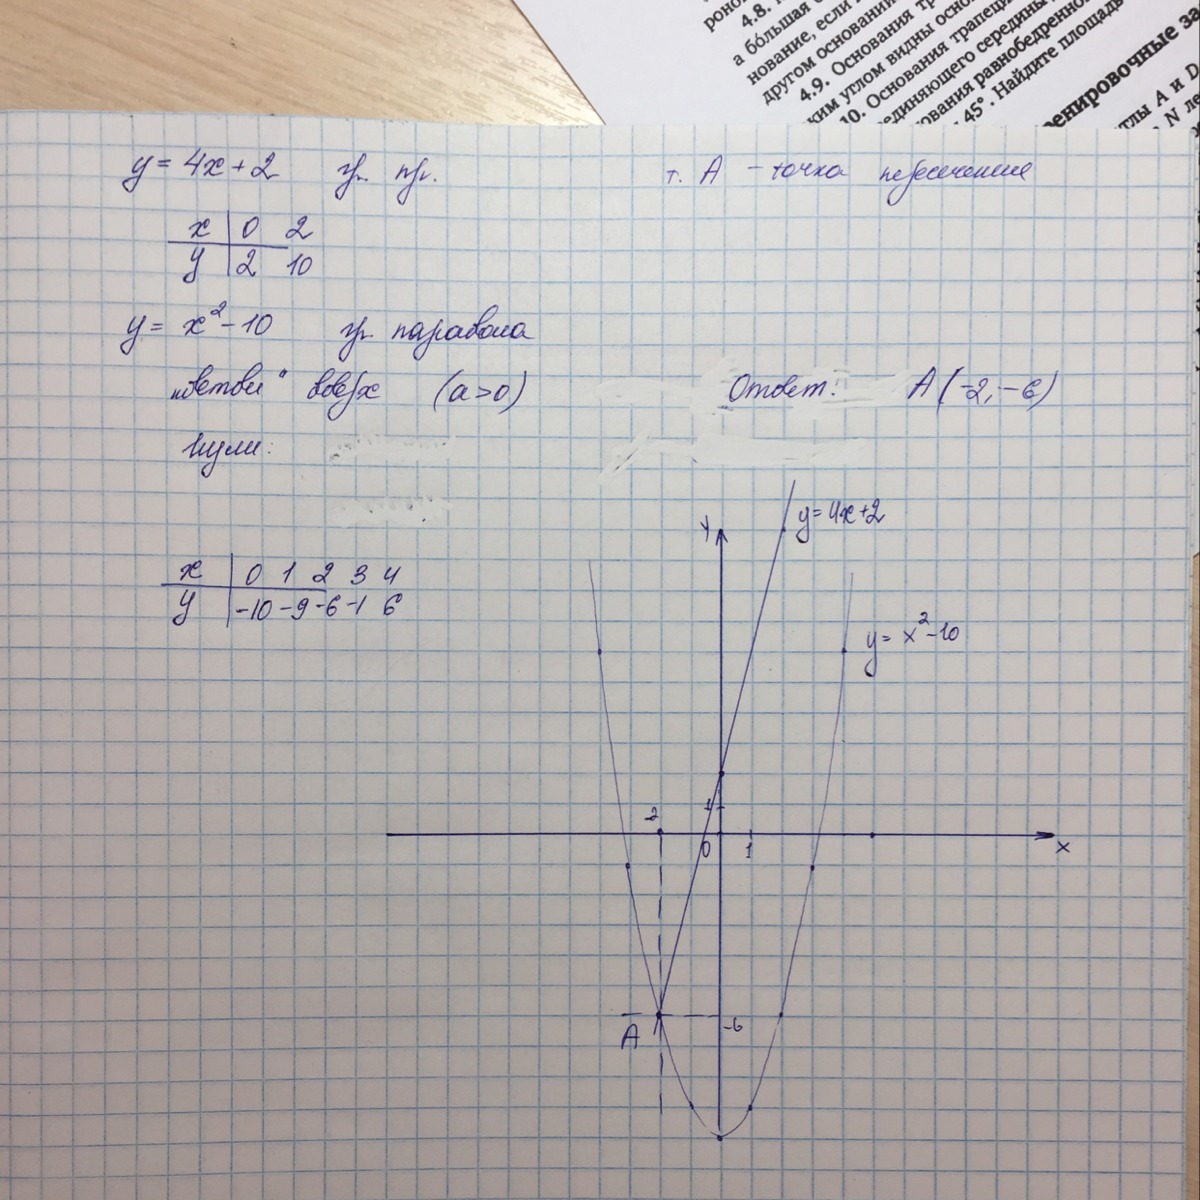 ронов
4.8.
а большая
нование, если
другом основании
4.9. Основания тр
ким углом видны осно
10. Основания трапеции
единяющего середины
ования равнобедренно
45°. Найдите площадь
ренировочные за
глы A и D
N ле
y = 4x + 2 гр. пр.
т. A - точка пересечение
x 0 2
y 2 10
y = x² - 10 гр. парабола
"ветви" вверх (a > 0)
Ответ: A (-2, -6)
Нули:
x 0 1 2 3 4
y -10 -9 -6 -1 6
y
y = 4x + 2
y = x² - 10
1
-2
0 1 x
-6
A